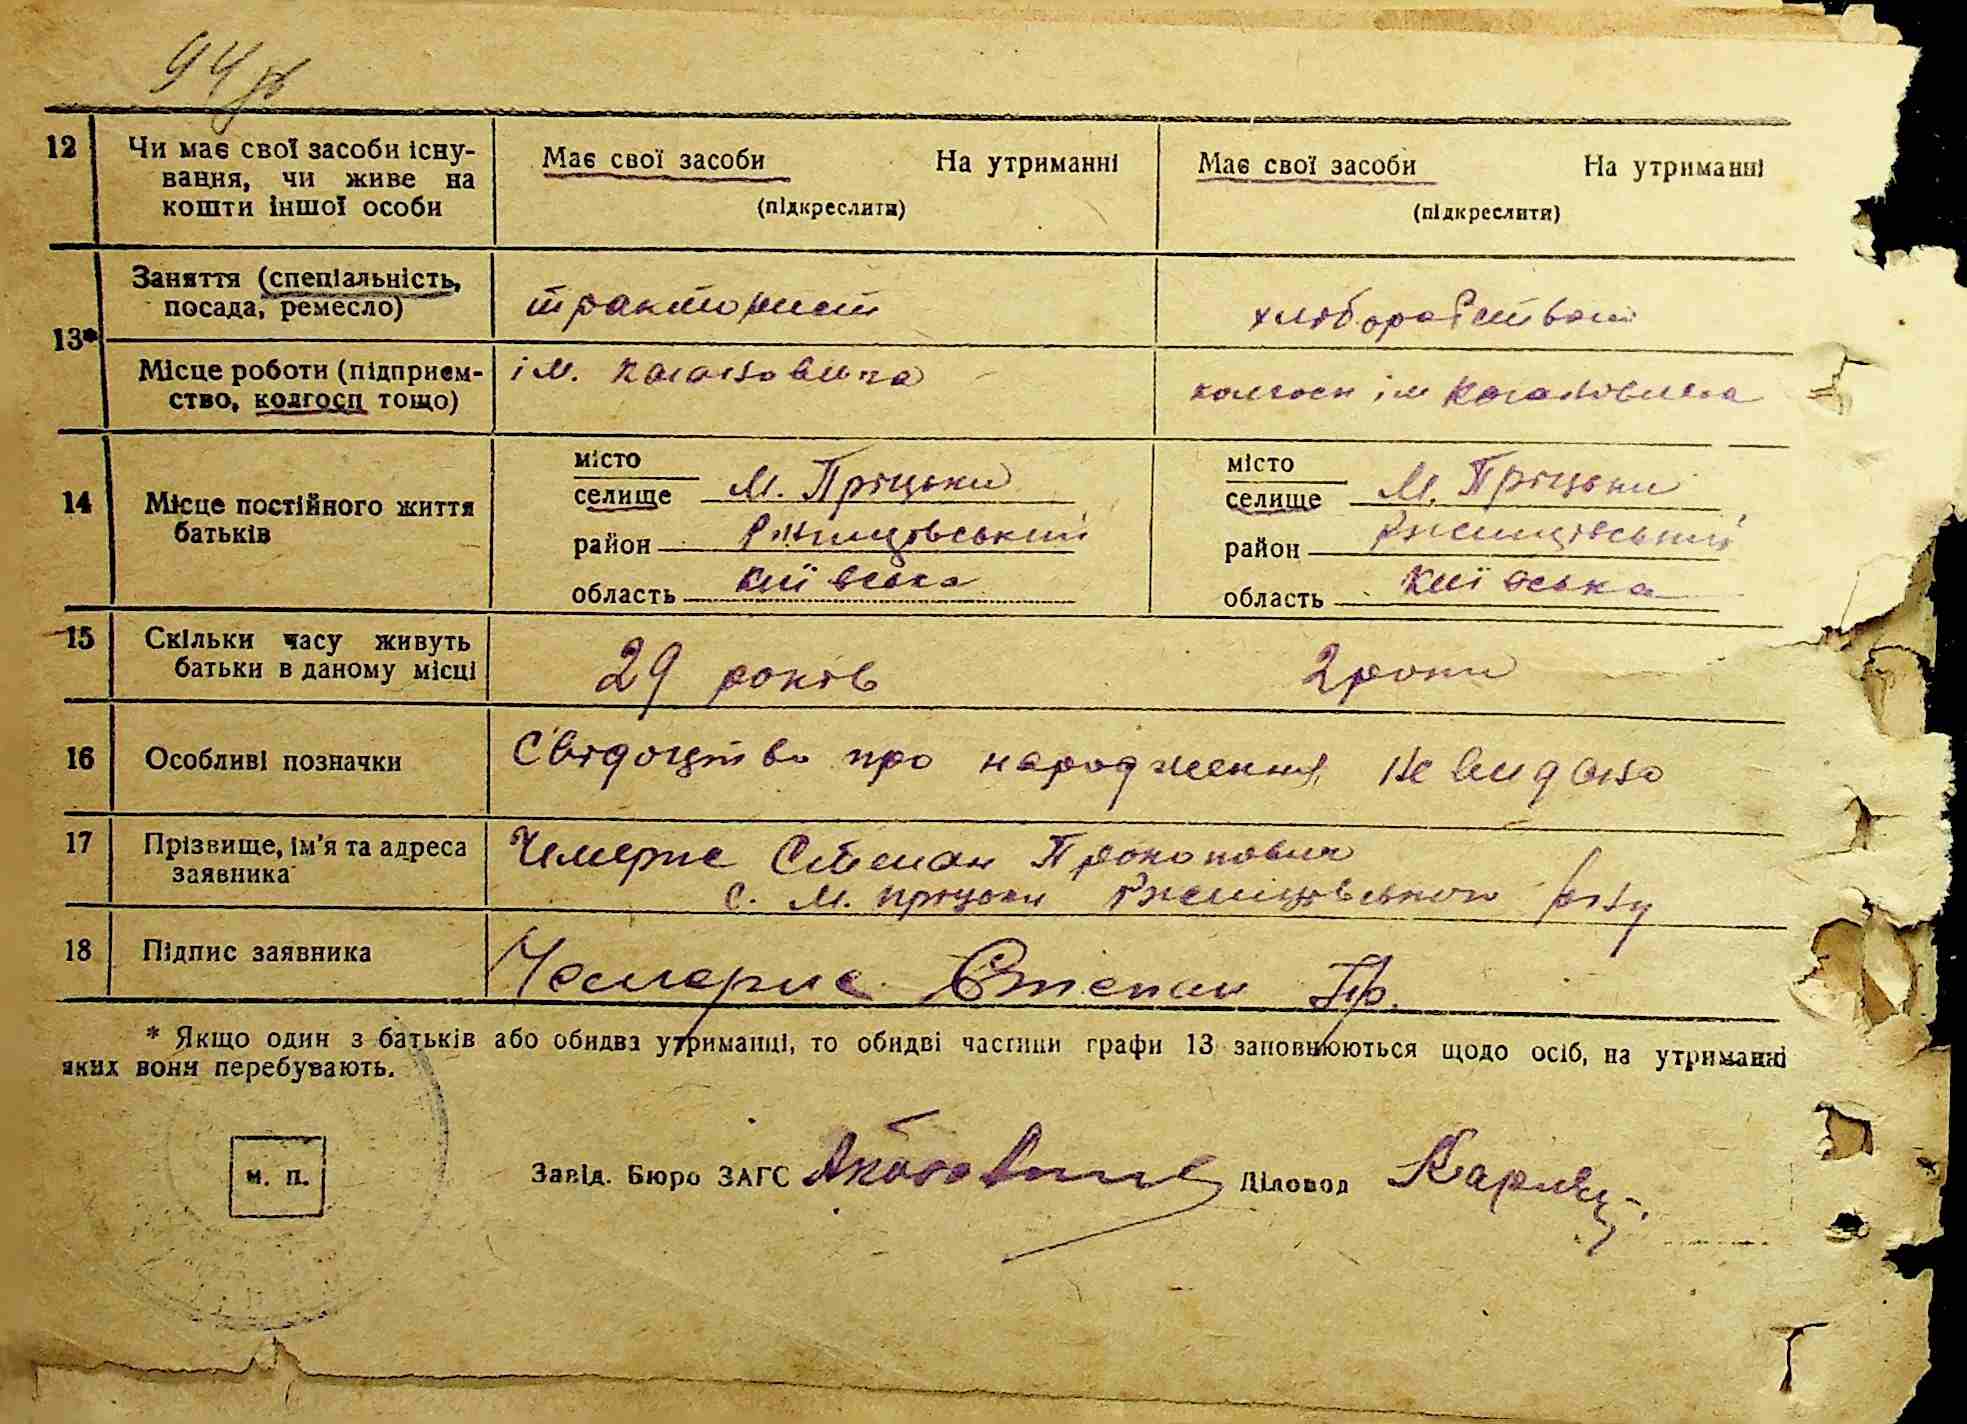 94
12 Чи має свої засоби існу-
вання, чи живе на
кошти іншої особи
Має свої засоби На утриманні
(підкреслити)
Має свої засоби На утриманні
(підкреслити)
13*
Заняття (спеціальність,
посада, ремесло)
тракторист
хліборобством
Місце роботи (підприєм-
ство, колгосп тощо)
ім. Кагановича
колгосп ім Кагановича
14 Місце постійного життя
батьків
місто
селище М. Пріцьки
район Ржищівський
область Київська
місто
селище М. Пріцьки
район Ржищівський
область Київська
15 Скільки часу живуть
батьки в даному місці
29 років
2 роки
16 Особливі позначки
Свідоцтво про народження не видано
17 Прізвище, ім'я та адреса
заявника
Чемерис Степан Прокопович
с. М. Пріцьки Ржищівського р-ну
18 Підпис заявника
Чемерис Степан Пр.
* Якщо один з батьків або обидва утриманці, то обидві частини графи 13 заповнюються щодо осіб, на утриманні
яких вони перебувають.
м. п.
Завід. Бюро ЗАГС
Діловод